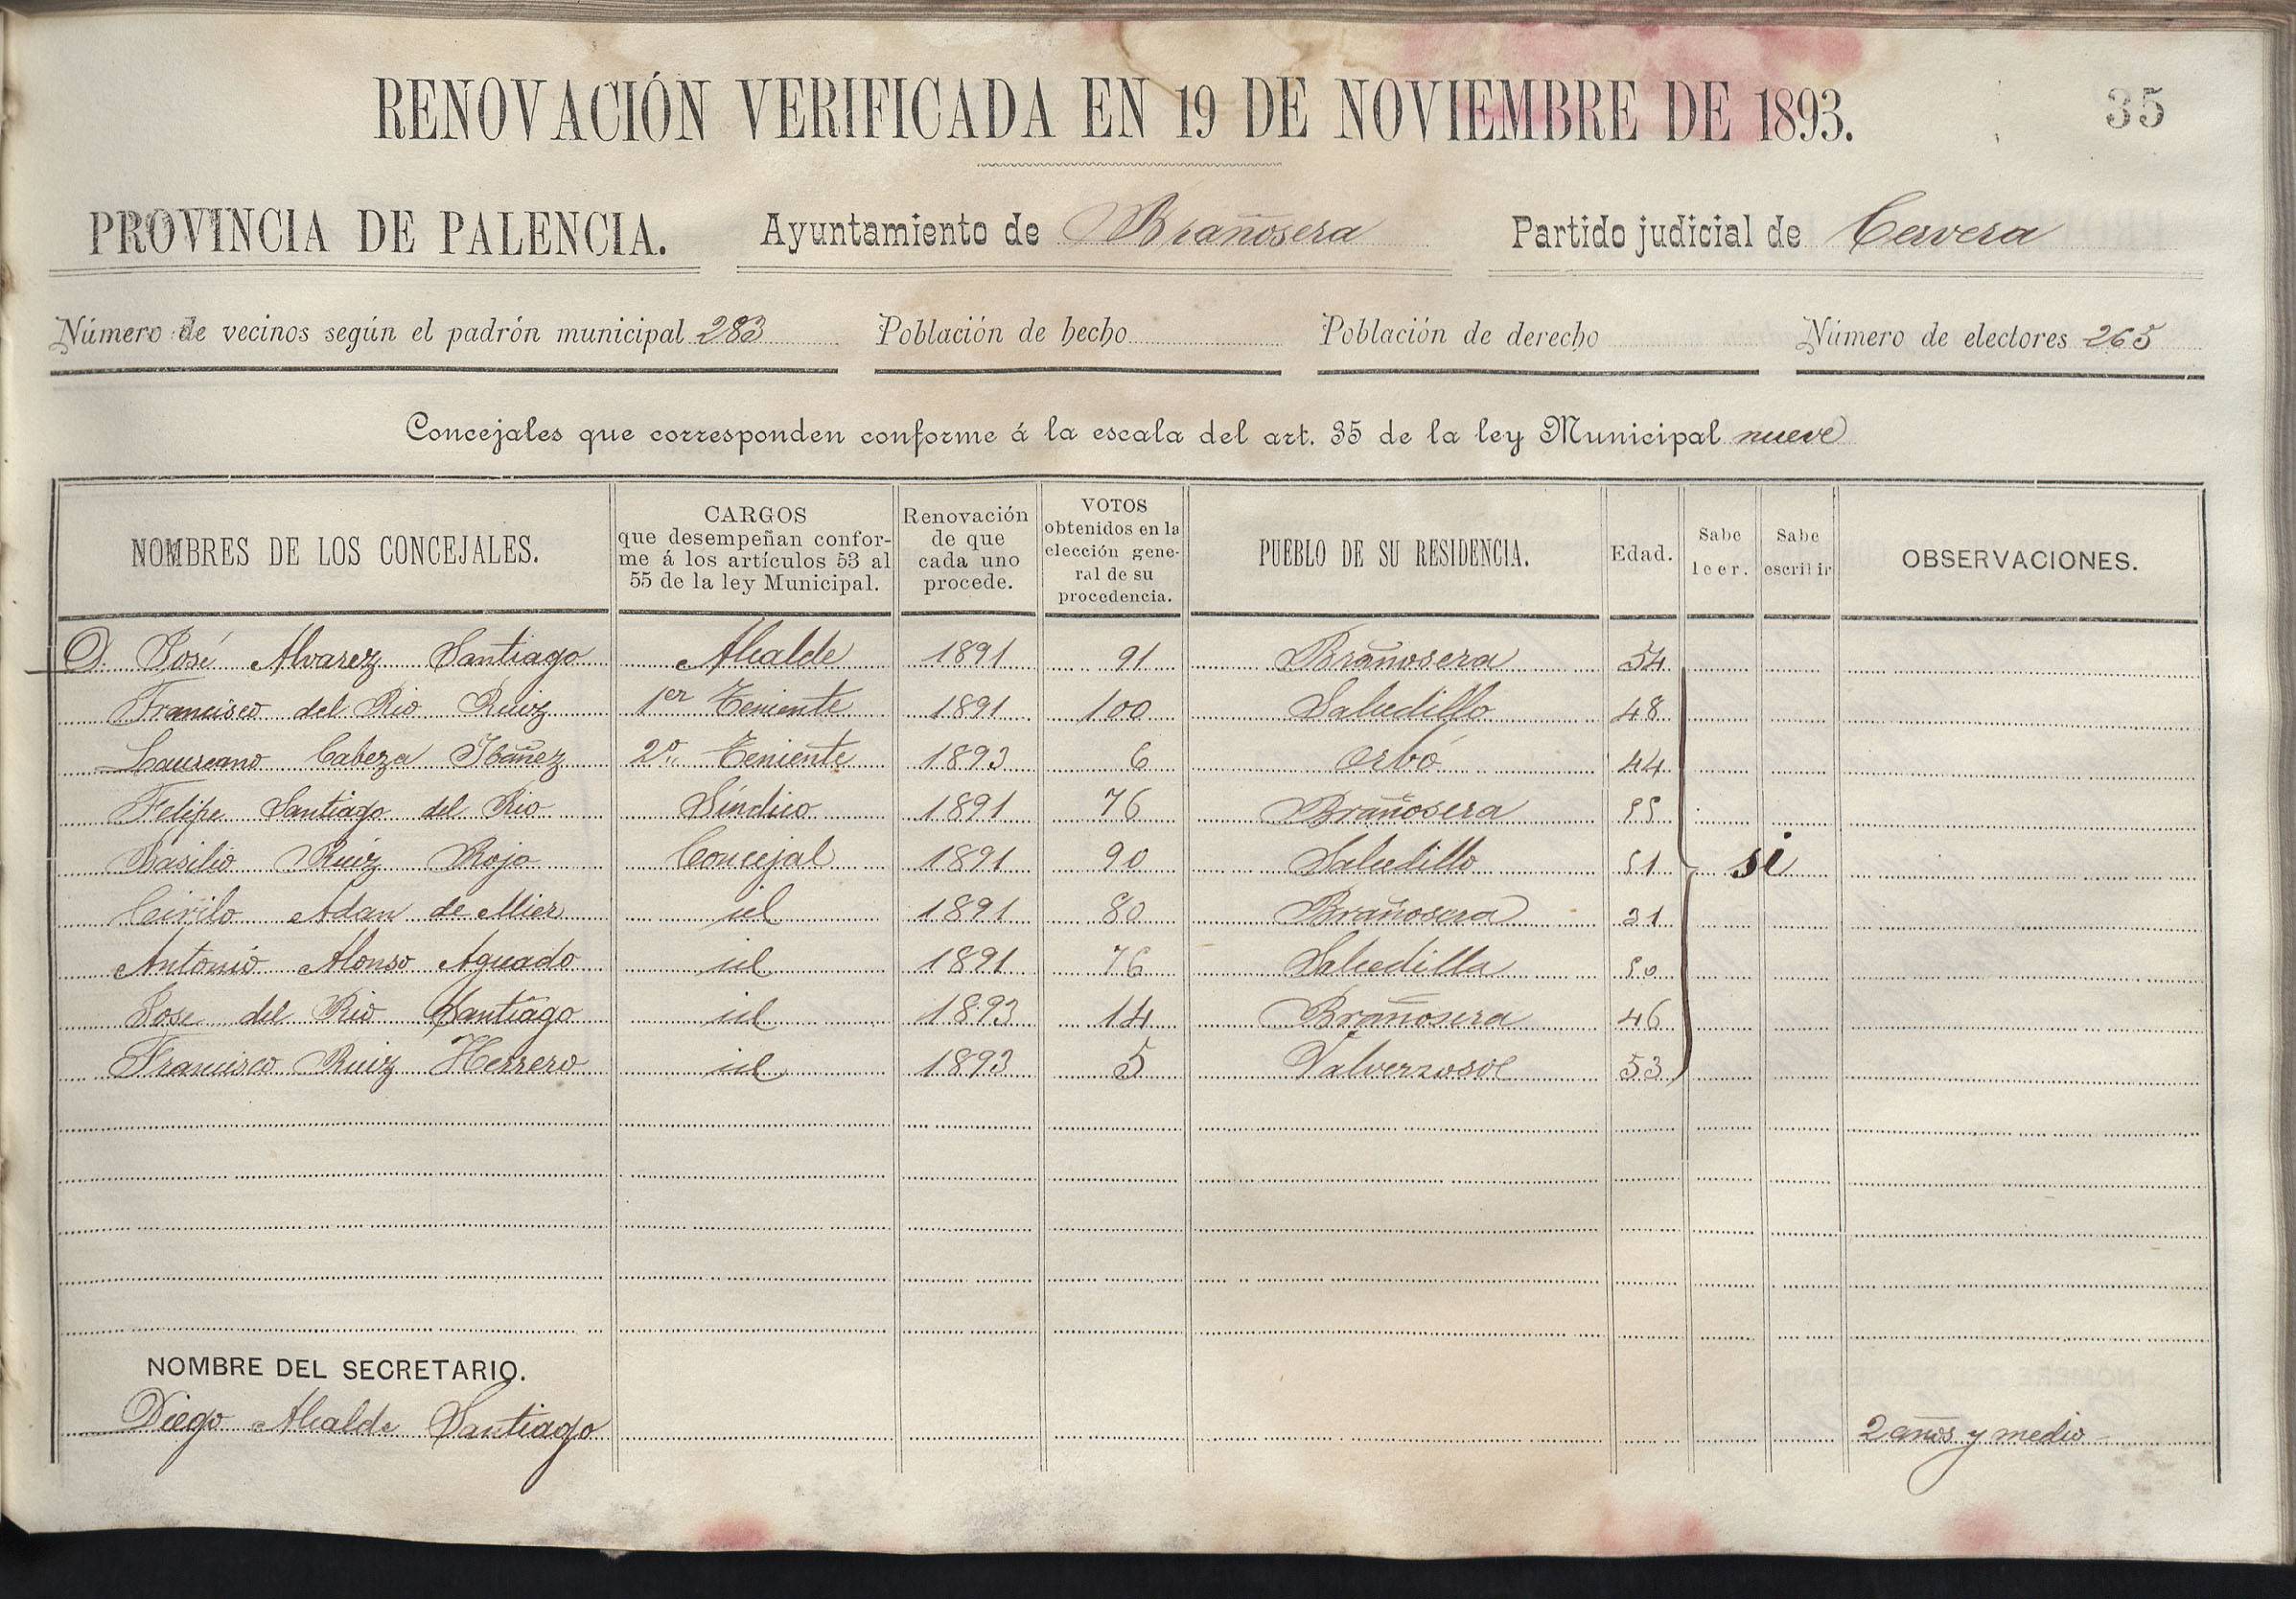 RENOVACIÓN VERIFICADA EN 19 DE NOVIEMBRE DE 1893.
35
PROVINCIA DE PALENCIA. Ayuntamiento de Brañosera Partido judicial de Cervera
Número de vecinos según el padrón municipal 283 Población de hecho Población de derecho Número de electores 265
Concejales que corresponden conforme á la escala del art. 35 de la ley Municipal nueve
NOMBRES DE LOS CONCEJALES. CARGOS que desempeñan conforme á los artículos 53 al 55 de la ley Municipal. Renovación de que cada uno procede. VOTOS obtenidos en la elección general de su procedencia. PUEBLO DE SU RESIDENCIA. Edad. Sabe leer. Sabe escribir OBSERVACIONES.
D. José Alvarez Santiago Alcalde 1891 91 Brañosera 54
Francisco del Rio Ruiz 1er Teniente 1891 100 Salcedillo 48
Laureano Cabeza Ibáñez 2º Teniente 1893 6 Orbó 44
Felipe Santiago del Rio Síndico 1891 76 Brañosera 55
Basilio Ruiz Rojo Concejal 1891 90 Salcedillo 51 si
Cirilo Adan de Mier id 1891 80 Brañosera 31
Antonio Alonso Aguado id 1891 76 Salcedillo 50
Jose del Rio Santiago id 1893 14 Brañosera 46
Francisco Ruiz Herrero id 1893 5 53
NOMBRE DEL SECRETARIO.
Diego Alcalde Santiago 2 años y medio